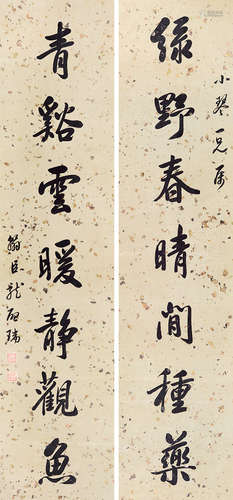 小琴一兄属
綠野春晴閒種藥
青谿雲暖靜觀魚
翰臣龍啟瑞